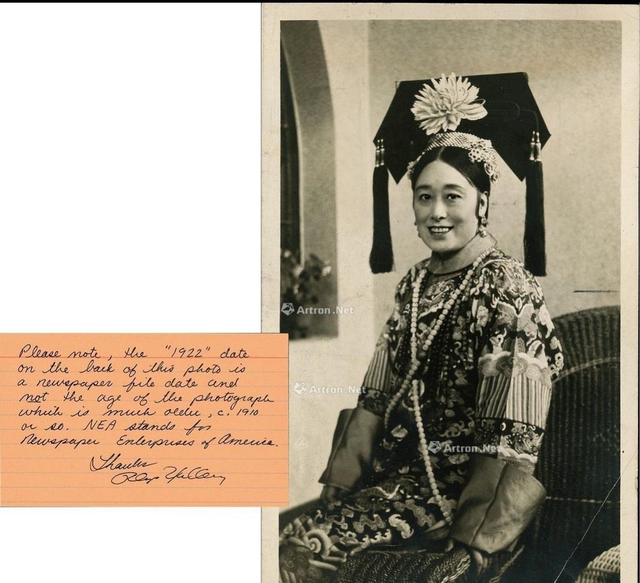 Please note, the "1922" date
on the back of this photo is
a newspaper file date and
not the age of the photograph
which is much older, c. 1910
or so. NEA stands for
Newspaper Enterprises of America.
Thanks
Artron.Net
Artron.Net
Artron.Net